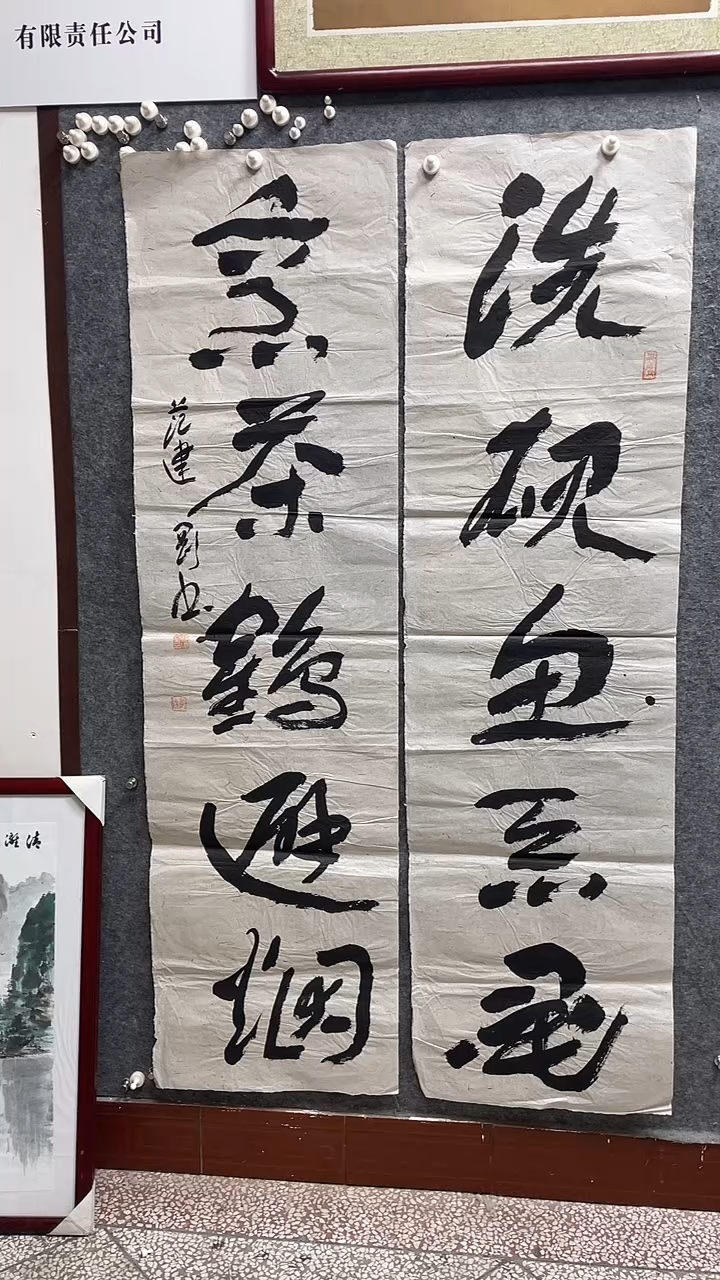 有限责任公司
洗砚鱼吞墨
烹茶鶴避烟
范建刚书
清漓